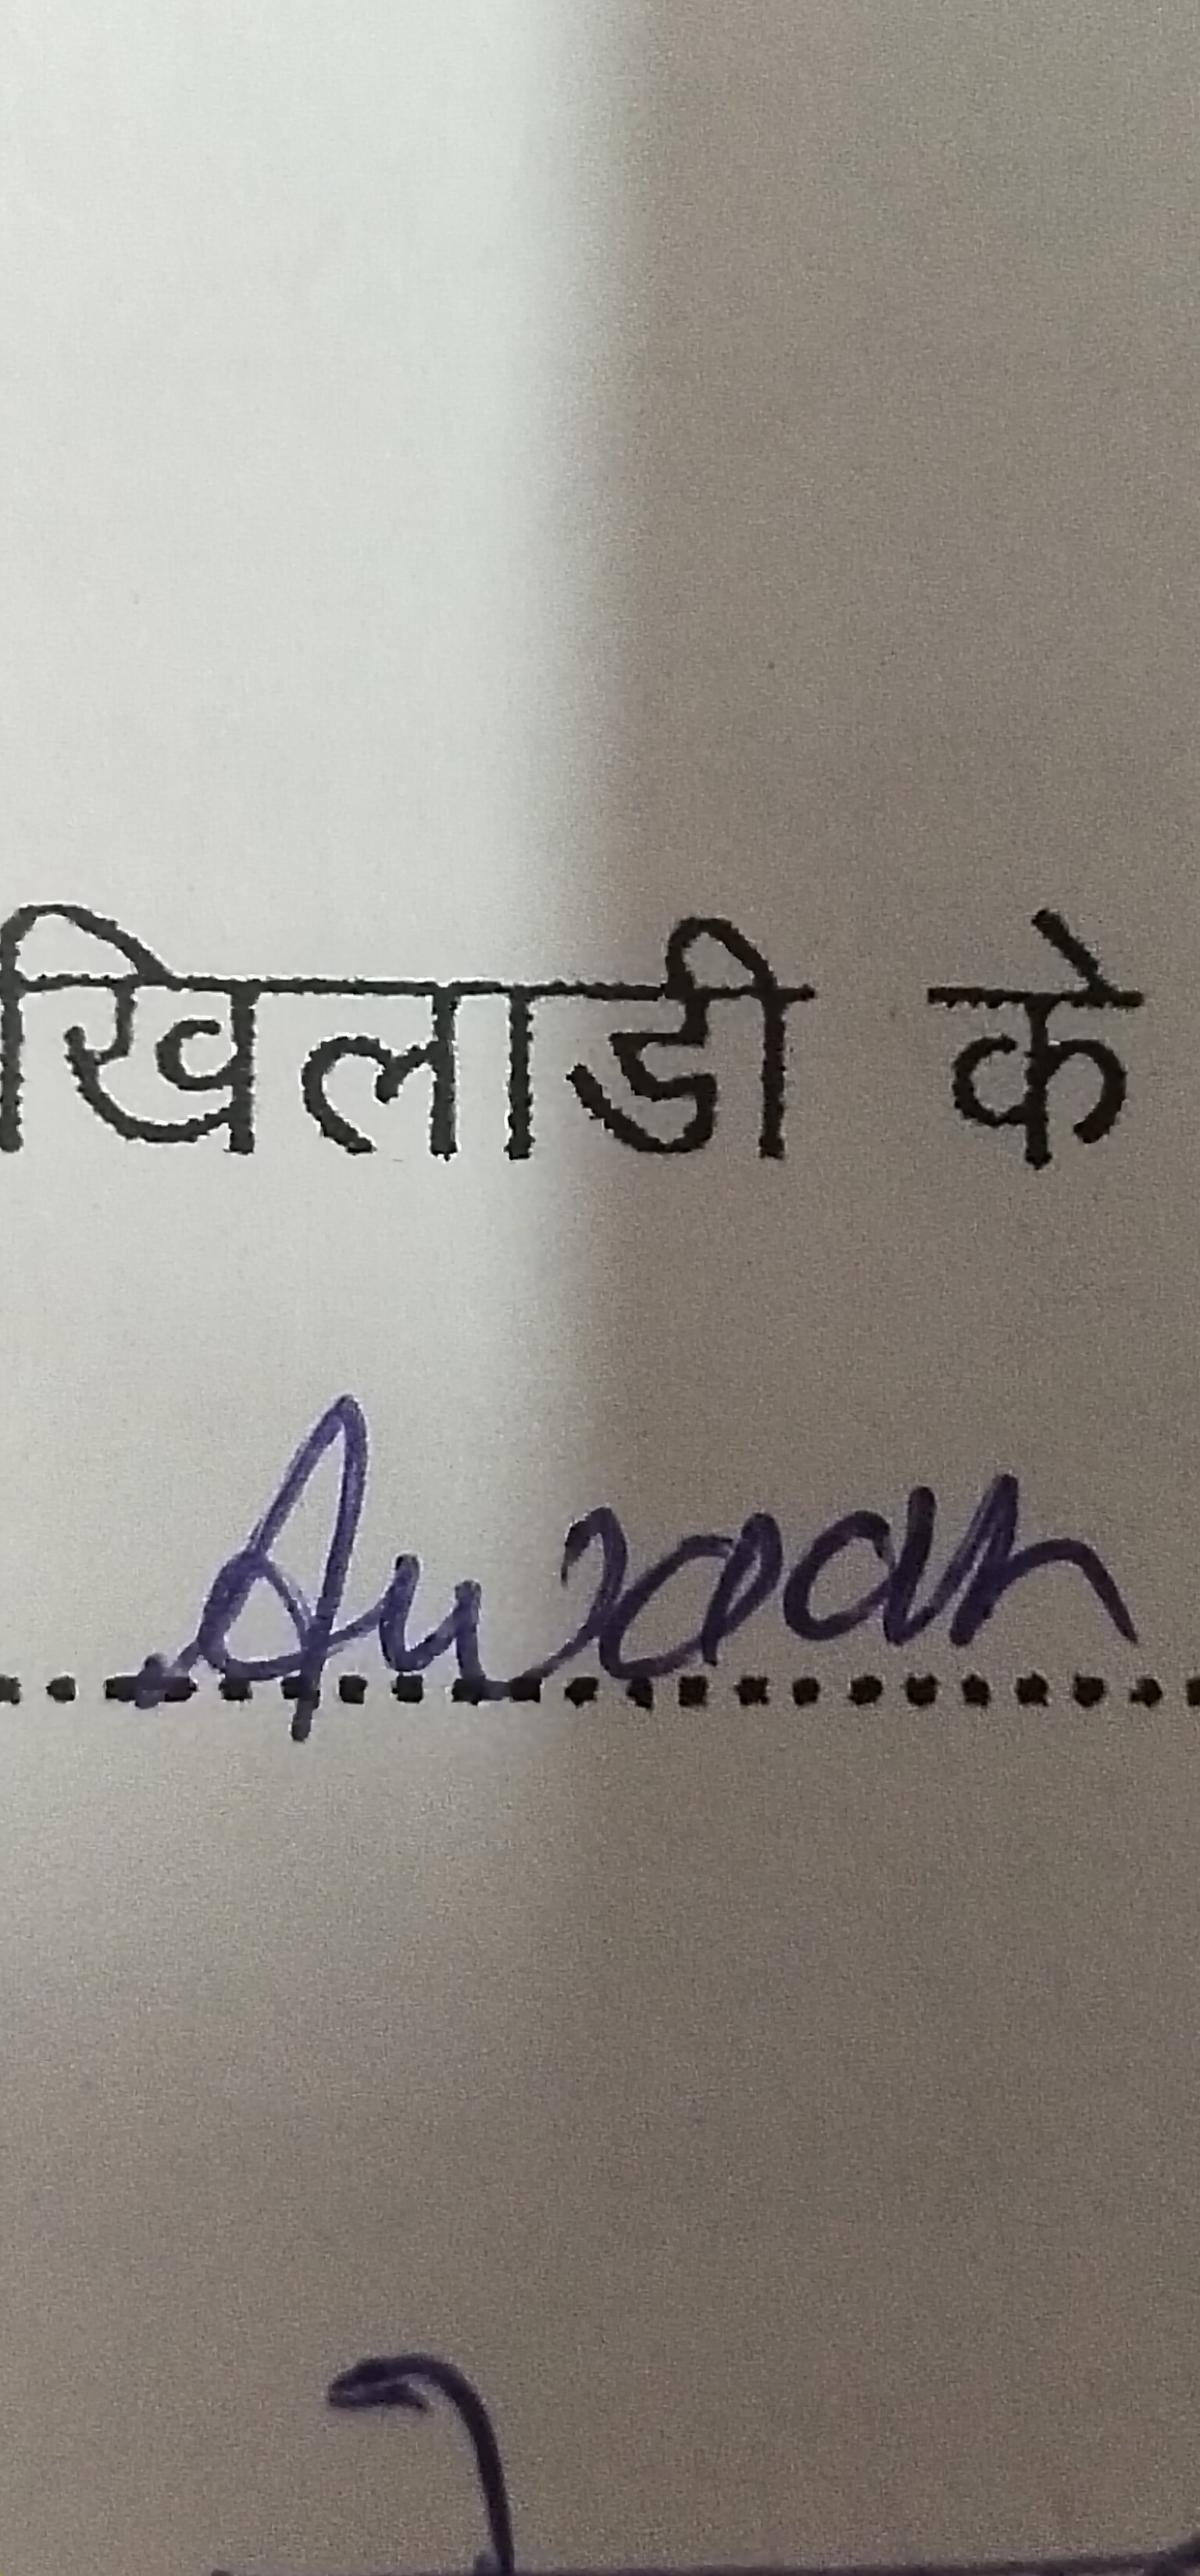 खिलाडी के
Auraan